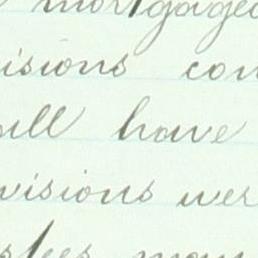 mortgaged
isions con
all have
visions wer
may